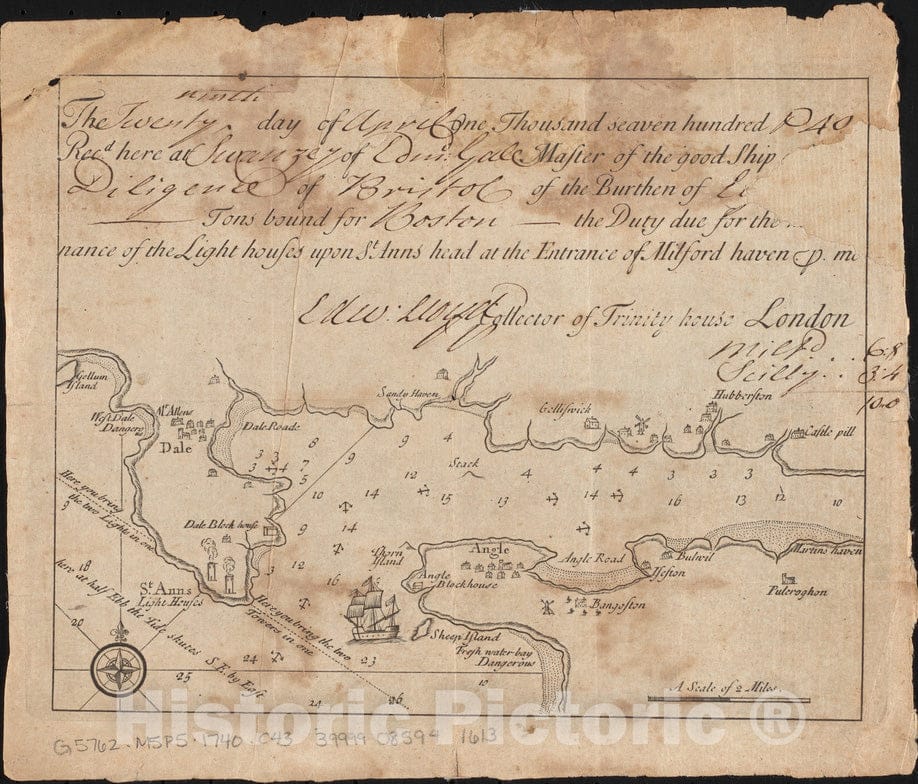 ninth
The Twenty day of April One Thousand seaven hundred & 40
Rec.d here at Swanzey of Edm: Gale Master of the good Ship
Diligence of Bristol of the Burthen of
Tons bound for Boston — the Duty due for the
nance of the Light houses upon St Anns head at the Entrance of Milford haven
Edw: Lloyd Collector of Trinity house London
milfd .. 6.8
Scilly .. 3:4
10.0
Gellum
Island
West Dale
Dangero
Mr Allens
Dale
Dale Roade
Sandy Haven
Gelliswick
Hubberston
Castle pill
Stack
8
9
9
4
3 3
3 4
7
5
10
14
12
15
13
4
14
4
4
3
3
16
13
12
10
Here you bring
the two Lights in one
9
Dale Block house
9
14
3
12
16
Thorn
Island
Angle
Angle
Blockhouse
Angle Road
Bulwil
Martins haven
Pulcroghon
Bangeston
18
Here at half Ebb the Tide shutes S E. by East
St. Anns
Light Houses
Here you bring the two
Towers in one
Sheep Island
Fresh water bay
Dangerous
20
25
24
23
24
26
10
A Scale of 2 Miles.
Historic Pictoric ®
G5762 .M5P5 1740 .C43 39999 08599 1613